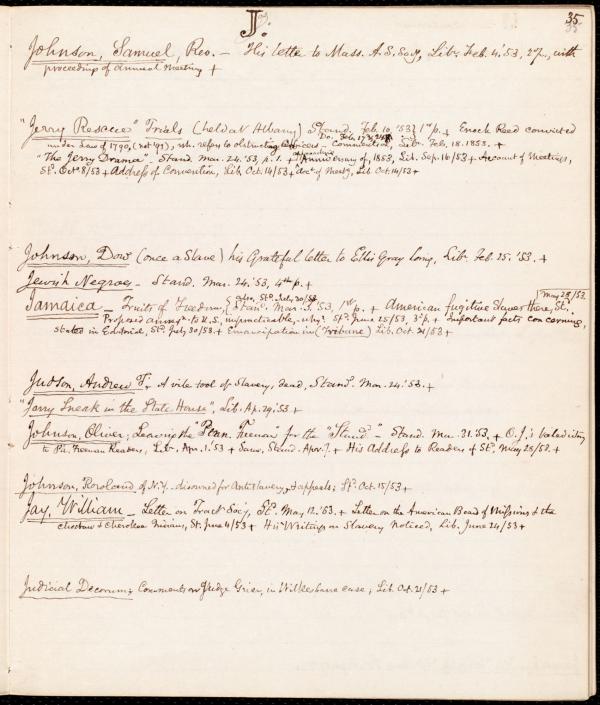 J.
35
Johnson, Samuel, Rev. – His letter to Mass. A.S. Socy, Lib. Feb. 4. '53, 2d p., with
proceedings of annual meeting +
"Jerry Rescue" Trials (held at Albany) Stand. Feb. 10, '53, 1st p. + Enoch Reed convicted
Do. Feb. 17 & 24
under Law of 1790, (not '93), wh. refers to obstructing Officers – Lib. Feb. 18. 1853. +
"The Jerry Drama". Stand. Mar. 24. '53 p. 1. + Anniversary of, 1853, Lib. Sep. 16/53 + Account of Meetings,
St. Oct. 8/53 + Address of Convention, Lib. Oct. 14/53 + doct. of Meetg, Lib. Oct. 14/53 +
Johnson, Dow (once a Slave) his Grateful letter to Ellis Gray Loring, Lib. Feb. 25. '53. +
Jewish Negroes – Stand. Mar. 24. '53, 4th p. +
May 28/53
also, St. July 30/53
Jamaica – Fruits of Freedom, Stan. Mar. 3. '53, 1st p. + American fugitive slaves there, St.
Proposed annexn. to U.S., impracticable, why? St. June 25/53, 3d p. + Important facts concerning,
stated in Editorial, St. July 30/53 + Emancipation in (Tribune) Lib. Oct. 21/53 +
Judson, Andrew T. A vile tool of Slavery, dead, Stand. Mar. 24. '53. +
"Jerry Sneak in the State House", Lib. Ap. 24. '53 +
Johnson, Oliver; Leaving the "Penn. Freeman" for the "Stand." – Stand. Mar. 31. '53. + O.J.'s Valedictory
to Pa. Freeman Readers, Lib. Apr. 1. '53 + Same, Stand. Apr. 7. + His Address to Readers of St. May 25/53. +
Johnson, Rowland of N.Y. disowned for Antislavery, & appeals; St. Oct. 15/53 +
Jay, William – Letter on Tract Socy, St. May 12. '53. + Letter on the American Board of Missions & the
Choctaw & Cherokee Indians, St. June 4/53 + His Writings on Slavery noticed, Lib. June 24/53 +
Judicial Decorum; Comments on Judge Grier, in Wilkesbarre case, Lib. Oct. 21/53 +